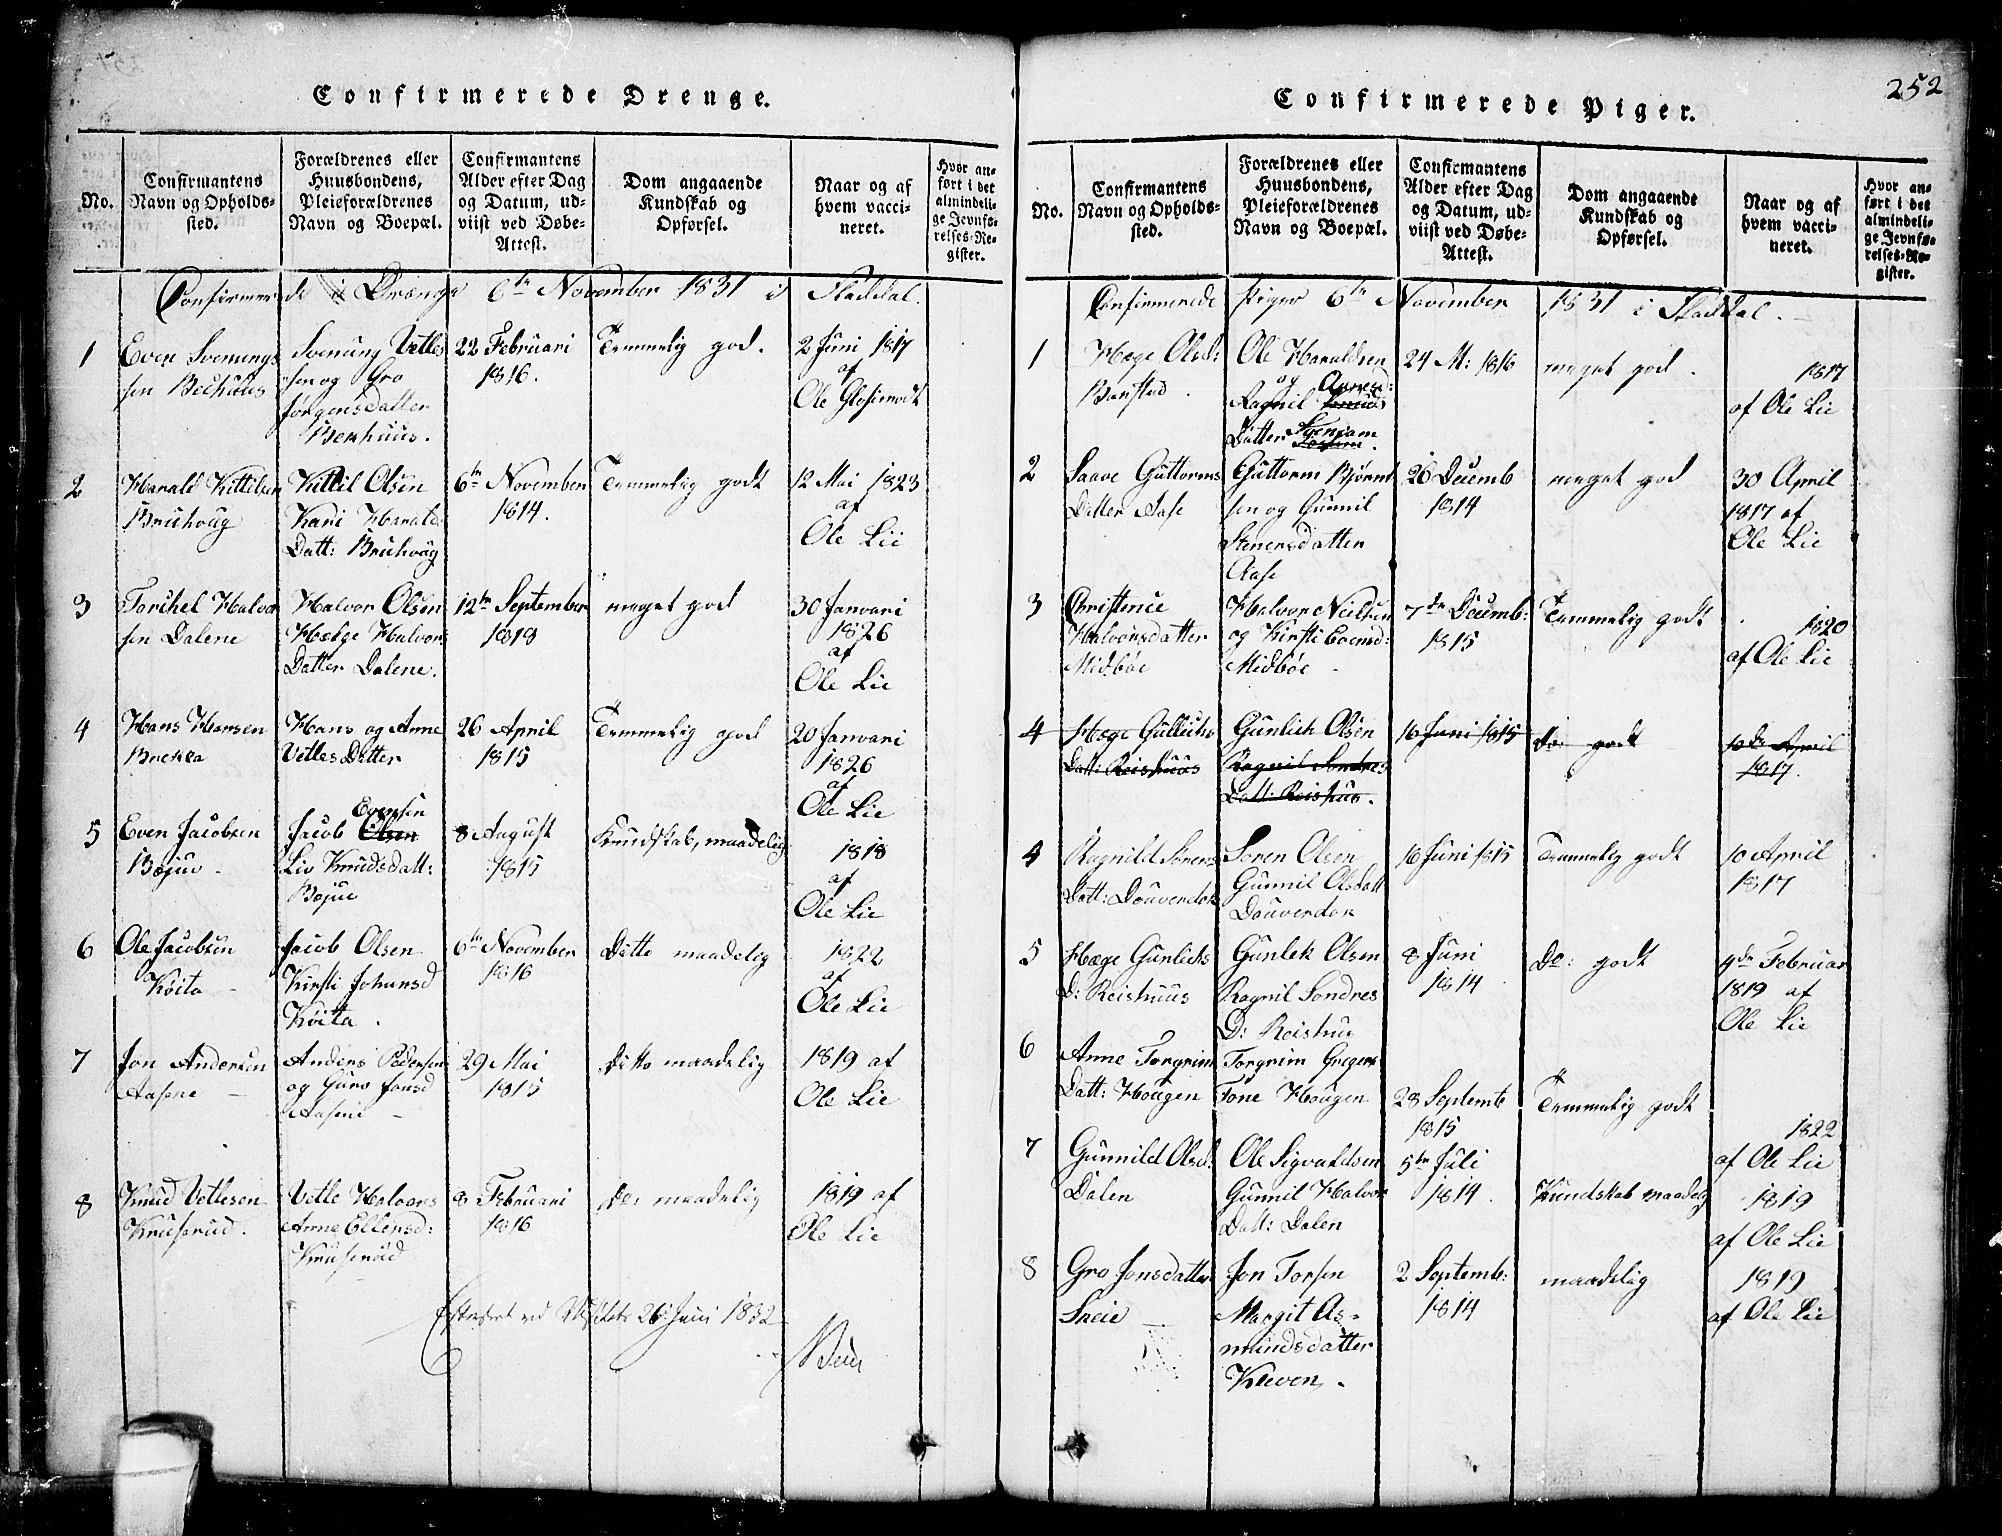 252
Confirmerede Drenge.
No.
Confirmantens
Navn og Opholds-
sted.
Forældrenes eller
Huusbondens,
Pleieforældrenes
Navn og Boepæl.
Confirmantens
Alder efter Dag
og Datum, ud-
viist ved Døbe-
Attest.
Dom angaaende
Kundskab og
Opførsel.
Naar og af
hvem vacci-
neret.
Hvor an-
ført i det
almindeli-
ge Jevnfø-
relses-Re-
gister.
Confirmerede Drenge 6te November 1831 i Fladdal.
1
Even Svenungs
sen
Svenung Vetles
sen og Gro
Jørgensdatter
22 Februari
1816.
Temmelig god.
2 Juni 1817
af
Ole
2
Harald Kittilsen
Kittil Olsen
Kari Harald
Datt:
6te November
1814.
Temmelig godt
12 Mai 1823
af
Ole Lie
3
Torchel Halvor
sen Dalene
Halvor Olsen
Halvors
Datter Dalene.
12te September
meget god
30 Januari
1826
af
Ole Lie
4
Hans Hansen
Hans og Anne
Vetles Datter
26 April
1815
Temmelig god
20 Januari
1826
af
Ole Lie
5
Even Jacobsen
Evensen
Jacob Olsen
Liv Knudsdatt:
8 August
1815
Kundskab, maadelig
1818
af
Ole Lie
6
Ole Jacobsen
Köita
Jacob Olsen
Kirsti Johansd
Köita.
6te November
1816
Ditto maadelig
1822
af
Ole Lie
7
Jon Andersen
Aasene
Anders Pedersen
og Guro Jonsd
Aasene
29 Mai
1815
Ditto maadelig
1819 af
Ole Lie
8
Knud Vetlesen
Knuserud.
Vetle Halvors
Anne Ellensd:
Knuserud
8 Februari
1816
Do: maadelig
1819 af
Ole Lie
26 Juni 1832
Confirmerede Piger.
No.
Confirmantens
Navn og Opholds-
sted.
Forældrenes eller
Huusbondens,
Pleieforældrenes
Navn og Boepæl.
Confirmantens
Alder efter Dag
og Datum, ud-
viist ved Døbe-
Attest.
Dom angaaende
Kundskab og
Opførsel.
Naar og af
hvem vacci-
neret.
Hvor an-
ført i det
almindeli-
ge Jevnfø-
relses-Re-
gister.
Confirmerede Piger 6te November 1831 i Fladdal.
1
Hæge Olsd:
Ole Haraldsen
og
Ragnil
Datter
24 M: 1816
meget god.
1817
af Ole Lie
2
Saave Guttorms
Datter Aase
Guttorm Bjørns
sen og Gunnil
Stenersdatter
Aase
26 Decemb
1814
meget god
30 April
1817 af
Ole Lie
3
Christence
Halvorsdatter
Midböe
Halvor Nielsen
og Kirsti Evensd:
Midböe
7de Decemb:
1815
Temmelig godt
1820
af Ole Lie
4
Hæge Gullichs
Datt: Reishuus
Gunlich Olsen
Ragnil Sondres
Datt: Reishus.
16 Juni 1815
Do: godt
10de April
1817.
4
Ragnild Sörens
Datt: Douverdok
Sören Olsen
Gunnil Olsdatt
Douverdok
16 Juni 1815
Temmelig godt
10 April
1817
5
Hæge Gunlichs
D: Reishuus
Gunlek Olsen
Ragnil Sondres
D: Reishuu
8 Juni
1814
Do: godt
9de Februar
1819 af
Ole Lie
6
Anne Torgrims
Datt: Hougen
Torgrim Gregers
Tone Hougen
28 Septemb
1815
Temmelig godt
1822
af Ole Lie
7
Gunnild Olsd:
Dalen
Ole Sigvaldsen
Gunnil Halvor
Datt: Dalen
5te Juli
1814.
Kundskab maadelig
1819
af Ole Lie
8
Gro Jonsdatter
Sneie
Jon Torsen
Margit As-
mundsdatter
Kleven.
2 Septemb:
1814
maadelig
1819
af Ole Lie